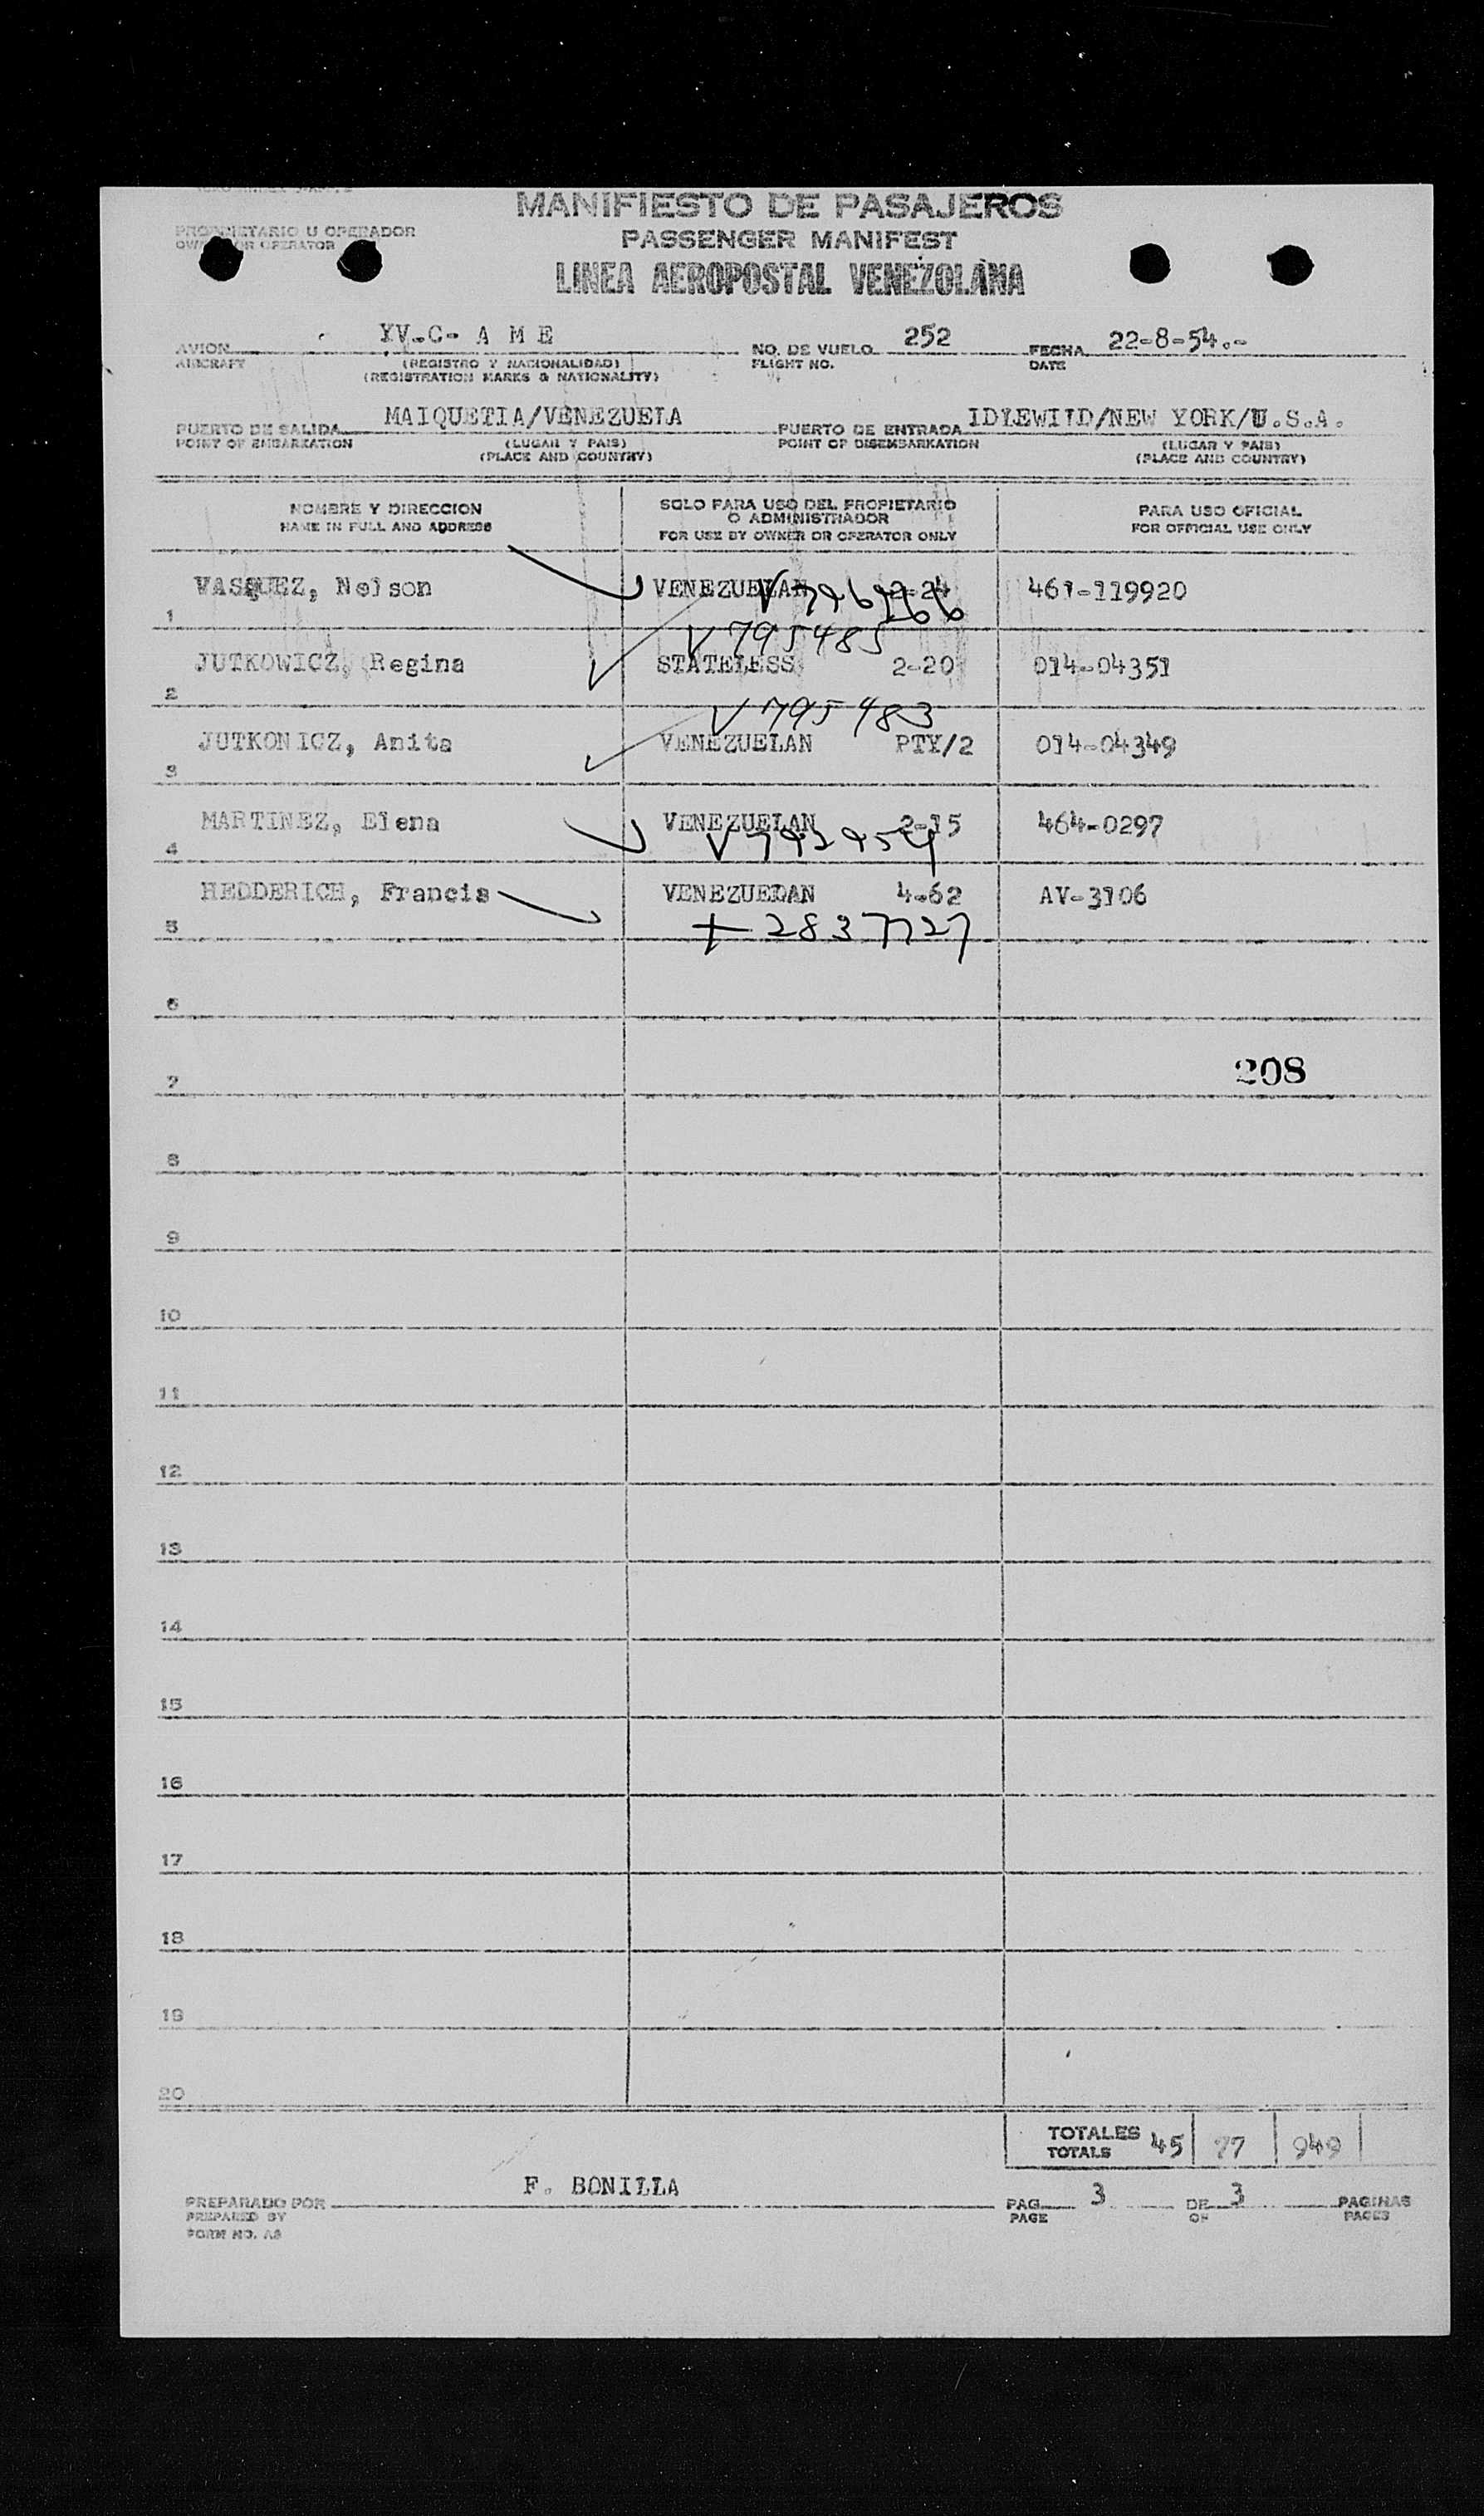 MANIFIESTO DE PASAJEROS
PROPIETARIO U OPERADOR
PASSENGER MANIFEST
OWNER OR OPERATOR
LINEA AEROPOSTAL VENEZOLANA
AVION YV-C- A M E NO. DE VUELO 252 FECHA 22-8-54.-
AIRCRAFT (REGISTRO Y NACIONALIDAD) FLIGHT NO. DATE
(REGISTRATION MARKS & NATIONALITY)
PUERTO DE SALIDA MAIQUETIA/VENEZUELA PUERTO DE ENTRADA IDLEWILD/NEW YORK/U.S.A.
POINT OF EMBARKATION (LUGAR Y PAIS) POINT OF DISEMBARKATION (LUGAR Y PAIS)
(PLACE AND COUNTRY) (PLACE AND COUNTRY)
NOMBRE Y DIRECCION SOLO PARA USO DEL PROPIETARIO O ADMINISTRADOR PARA USO OFICIAL
NAME IN FULL AND ADDRESS FOR USE BY OWNER OR OPERATOR ONLY FOR OFFICIAL USE ONLY
VASQUEZ, Nelson VENEZUELAN 2-24 461-119920
1
V795485
JUTKOWICZ, Regina STATELESS 2-20 014-04351
2
V795483
JUTKONICZ, Anita VENEZUELAN PTY/2 014-04349
3
MARTINEZ, Elena VENEZUELAN 2-15 464-0297
4
HEDDERICH, Francis VENEZUELAN 4-62 AV-3106
5
6
208
7
8
9
10
11
12
13
14
15
16
17
18
19
20
TOTALES 45 77 949
TOTALS
PREPARADO POR F. BONILLA PAG. 3 DE 3 PAGINAS
PREPARED BY PAGE OF PAGES
FORM NO. A8